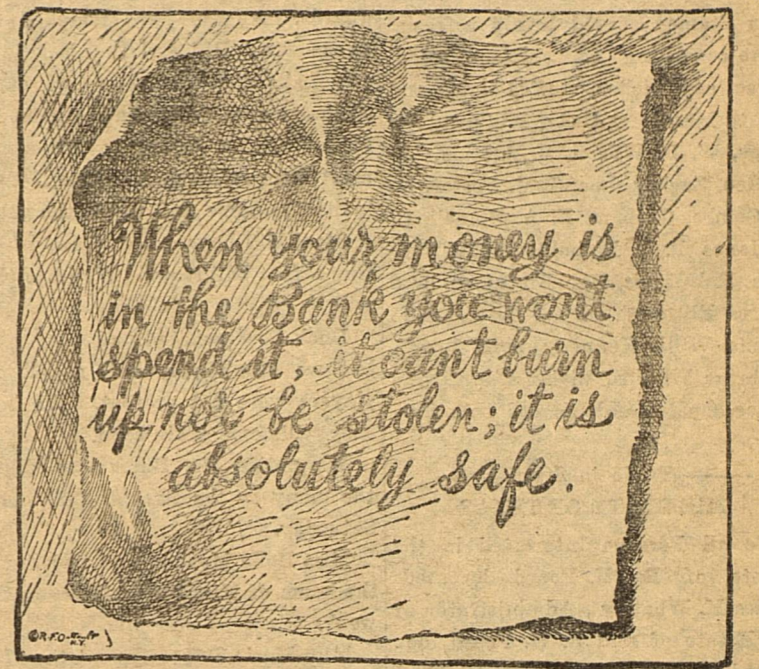 When your money is
in the Bank you wont
spend it, it cant burn
up nor be stolen; it is
absolutely safe.